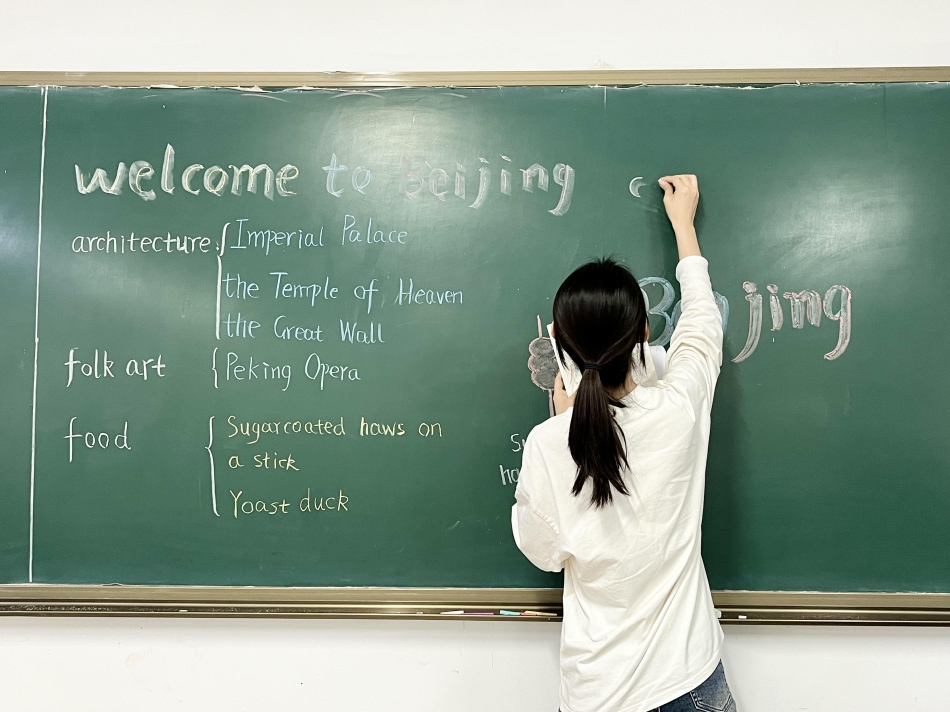 welcome to Beijing
architecture: Imperial Palace
the Temple of Heaven
the Great Wall
folk art Peking Opera
food Sugarcoated haws on
a stick
Yoast duck
jing